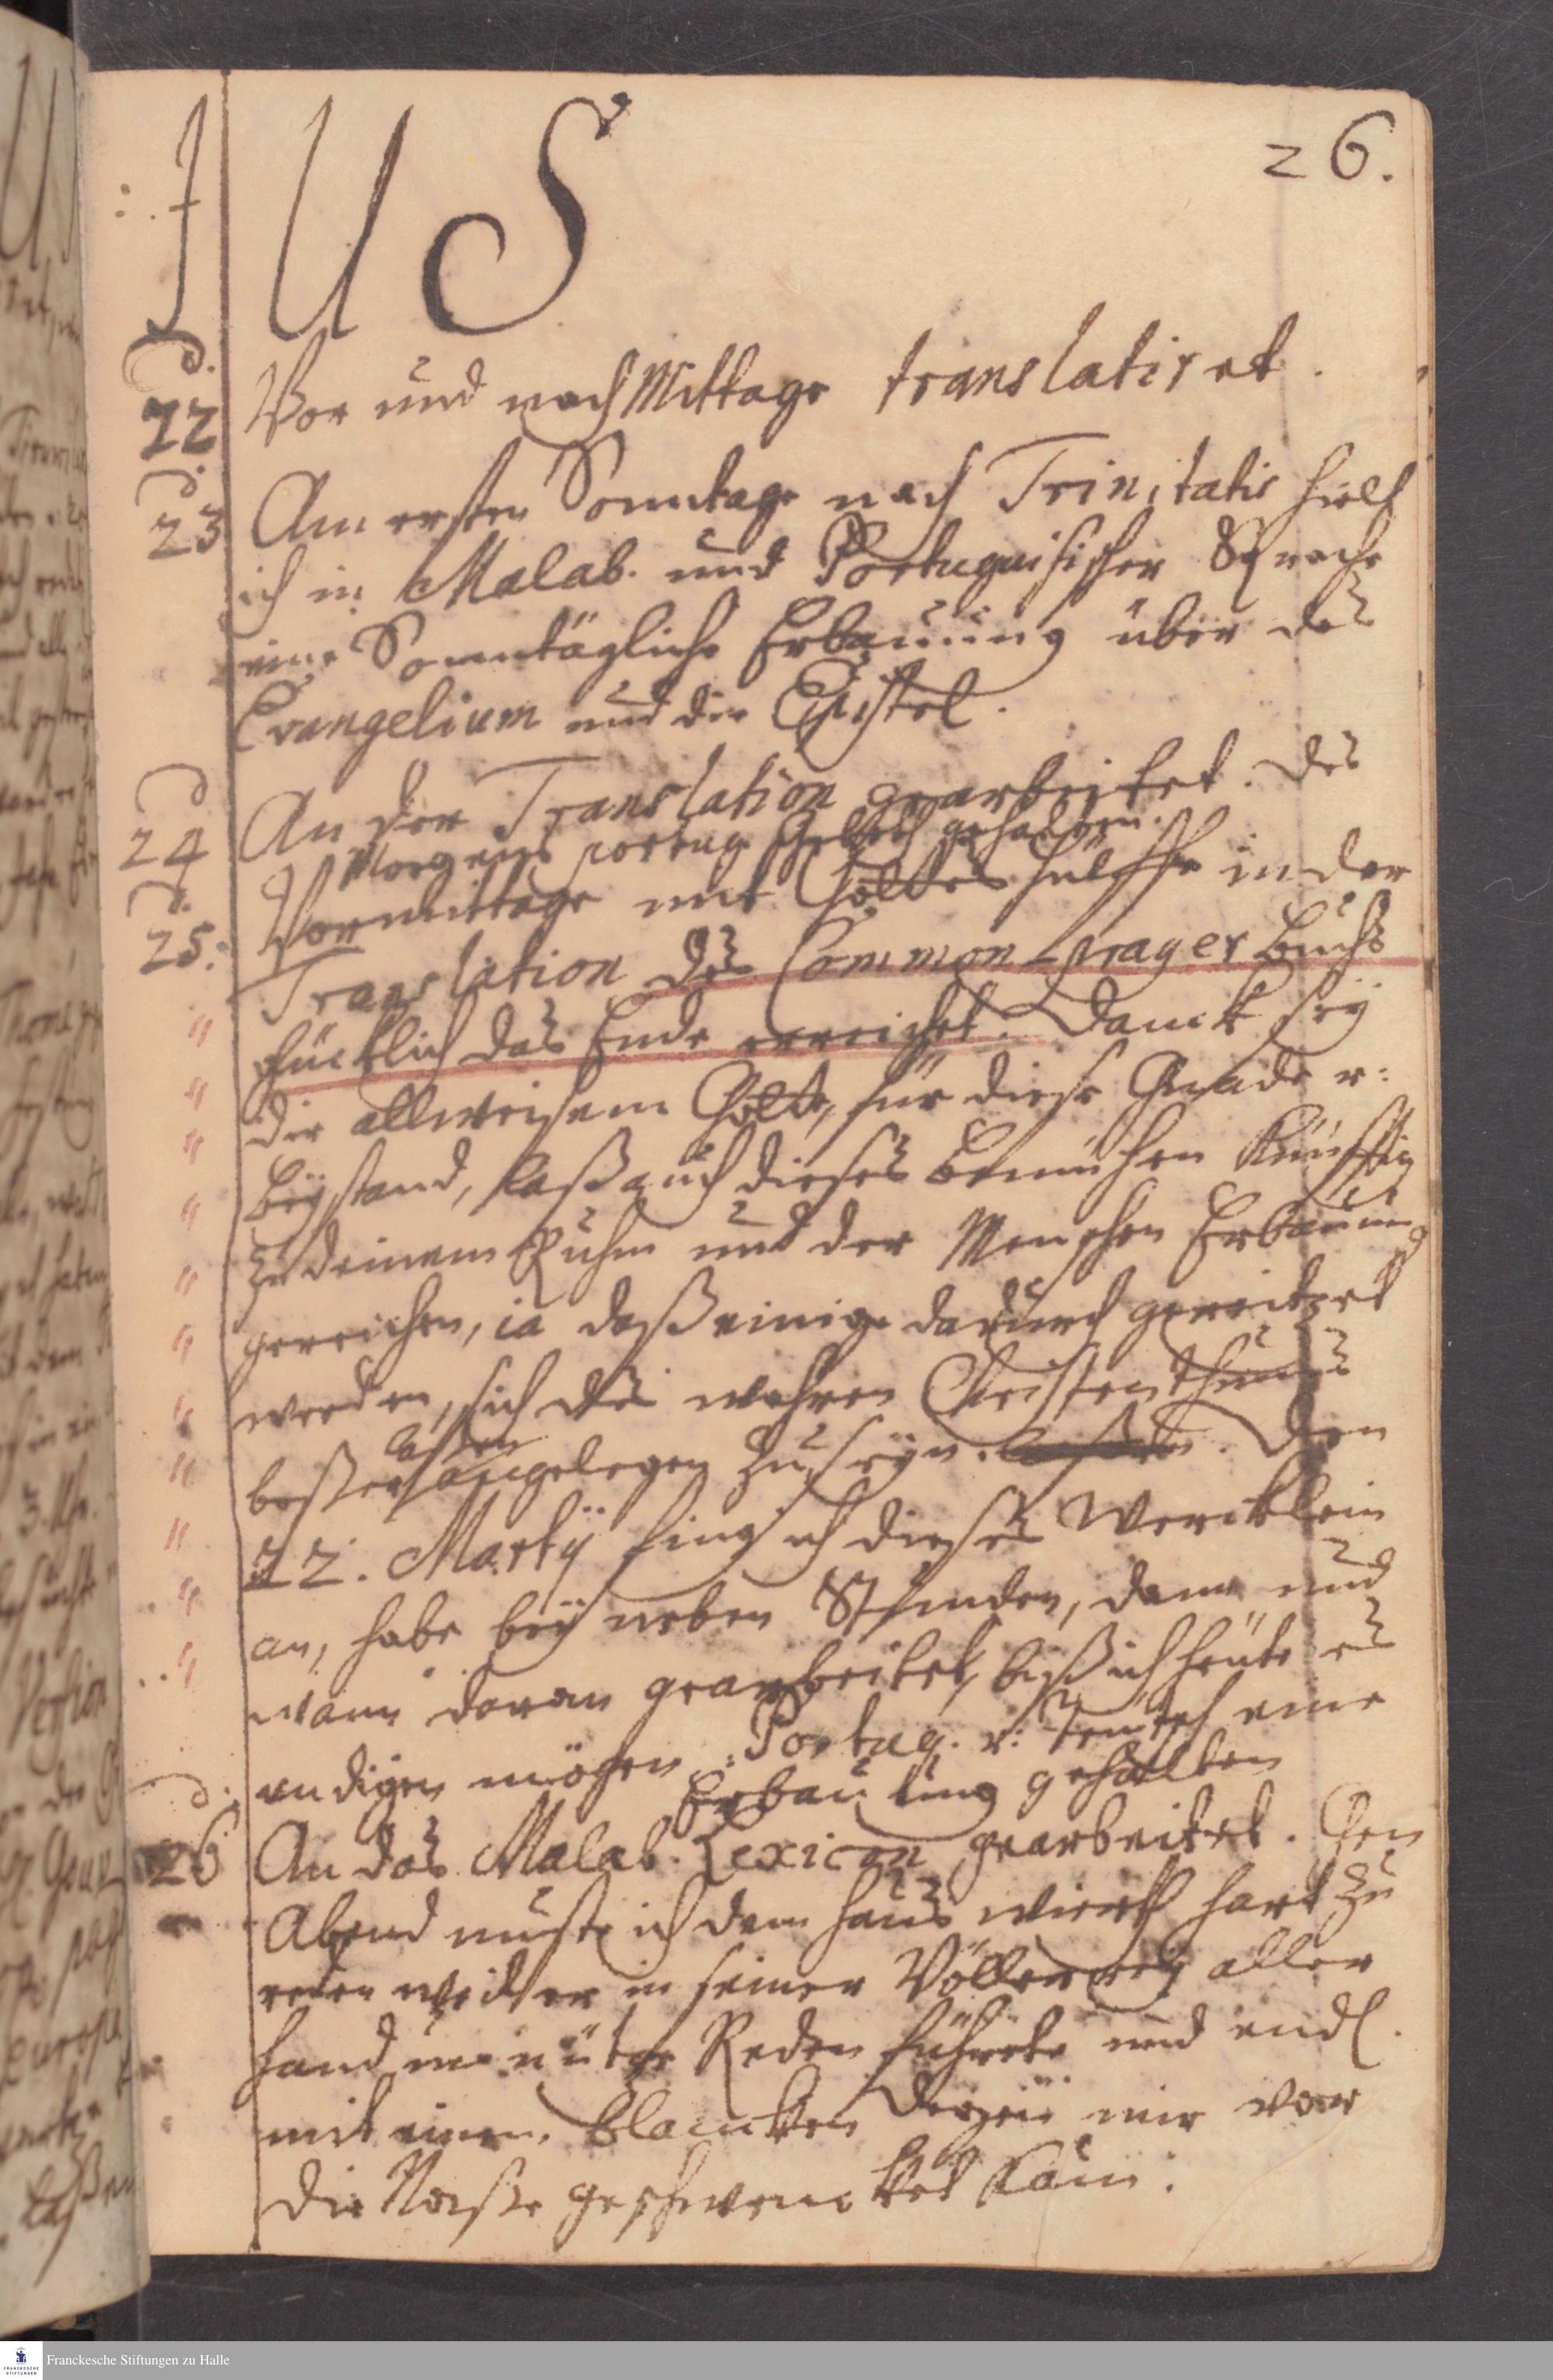 26.
I U S
d. 22 Vor und nach Mittage translatiret.
d. 23 Am ersten Sonntage nach Trinitatis hielt
ich in Malab. und Portuguisischer Sprache
eine Sonntägliche Erbauung über das
Evangelium und die Epistel.
d 24 An der Translation gearbeitet. Des
Morgens portug. gehalten.
d. 25. Vormittage mit Gottes hülffe in der
Translation des Common-prayer Buchs
glücklich das Ende erreichet. Danck seÿ
dir allweisem Gott, für diese Gnade u:
Beÿstand, laß auch dieses bemühen künfftig
zu deinem Ruhm und der Menschen Erbauung
gereichen, ia daß einige dadurch gereitzet
werden, sich des wahren Christenthums
beßer laßen angelegen zu seÿn. Den
22. Martÿ fing ich dieses Wercklein
an, habe beÿ neben Stunden, dann und
wann daran gearbeitet, biß ich heute es
endigen mögen. Portug. u: Teutsch eine
Erbauung gehalten
d. 26 An das Malab. Lexicon gearbeitet. Gen
Abend muste ich dem hauß wirth hart zu
reden weil er in seiner Völlereÿ aller
hand unnütze Reden führete und endl.
mit einem blancken Degen mir vor
die Naße geschwencket kam.
Franckesche Stiftungen zu Halle